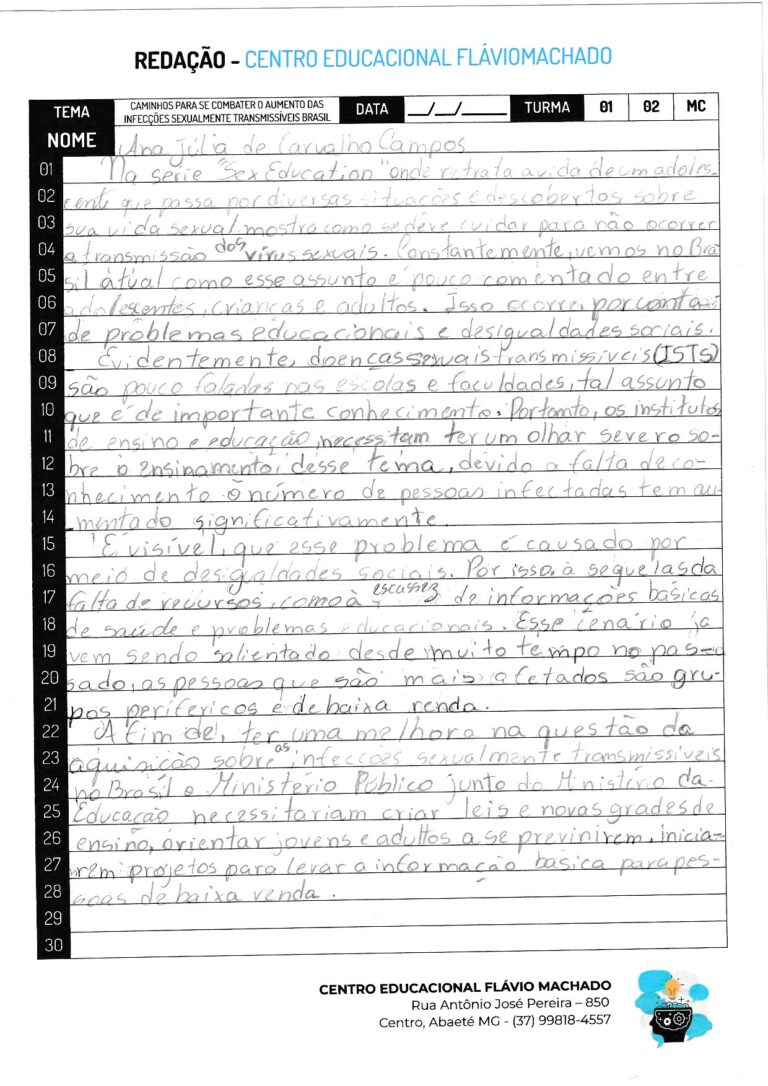 REDAÇÃO - CENTRO EDUCACIONAL FLÁVIOMACHADO
TEMA CAMINHOS PARA SE COMBATER O AUMENTO DAS INFECÇÕES SEXUALMENTE TRANSMISSÍVEIS BRASIL DATA __/__/____ TURMA 01 02 MC
NOME Ana Júlia de Carvalho Campos
01 Na série "Sex Education" onde retrata a vida de um adoles-
02 cente que passa por diversas situações e descobertas sobre
03 sua vida sexual mostra como se deve cuidar para não ocorrer
04 a transmissão dos vírus sexuais. Constantemente, vemos no Bra
05 sil atual como esse assunto é pouco comentado entre
06 adolescentes, crianças e adultos. Isso ocorre, por conta
07 de problemas educacionais e desigualdades sociais.
08 Evidentemente, doenças sexuais transmissíveis (ISTs)
09 são pouco faladas nas escolas e faculdades, tal assunto
10 que é de importante conhecimento. Portanto, os institutos
11 de ensino e educação, necessitam ter um olhar severo so-
12 bre o ensinamento desse tema, devido a falta de co-
13 nhecimento o número de pessoas infectadas tem au-
14 mentado significativamente.
15 É visível, que esse problema é causado por
16 meio de desigualdades sociais. Por isso, à sequelas da
17 falta de recursos, como à escassez de informações básicas
18 de saúde e problemas educacionais. Esse cenário ja
19 vem sendo salientado desde muito tempo no pas-
20 sado, as pessoas que são mais afetados são gru-
21 pos perifericos e de baixa renda.
22 A fim de, ter uma melhora na questão da
23 aquinição sobre as infecções sexualmente transmissíveis
24 no Brasil o Ministério Público junto do Ministério da
25 Educação necessitariam criar leis e novas grades de
26 ensino, orientar jovens e adultos a se previnirem, inicia-
27 rem projetos para levar a informação básica para pes-
28 soas de baixa renda.
29
30
CENTRO EDUCACIONAL FLÁVIO MACHADO
Rua Antônio José Pereira – 850
Centro, Abaeté MG - (37) 99818-4557